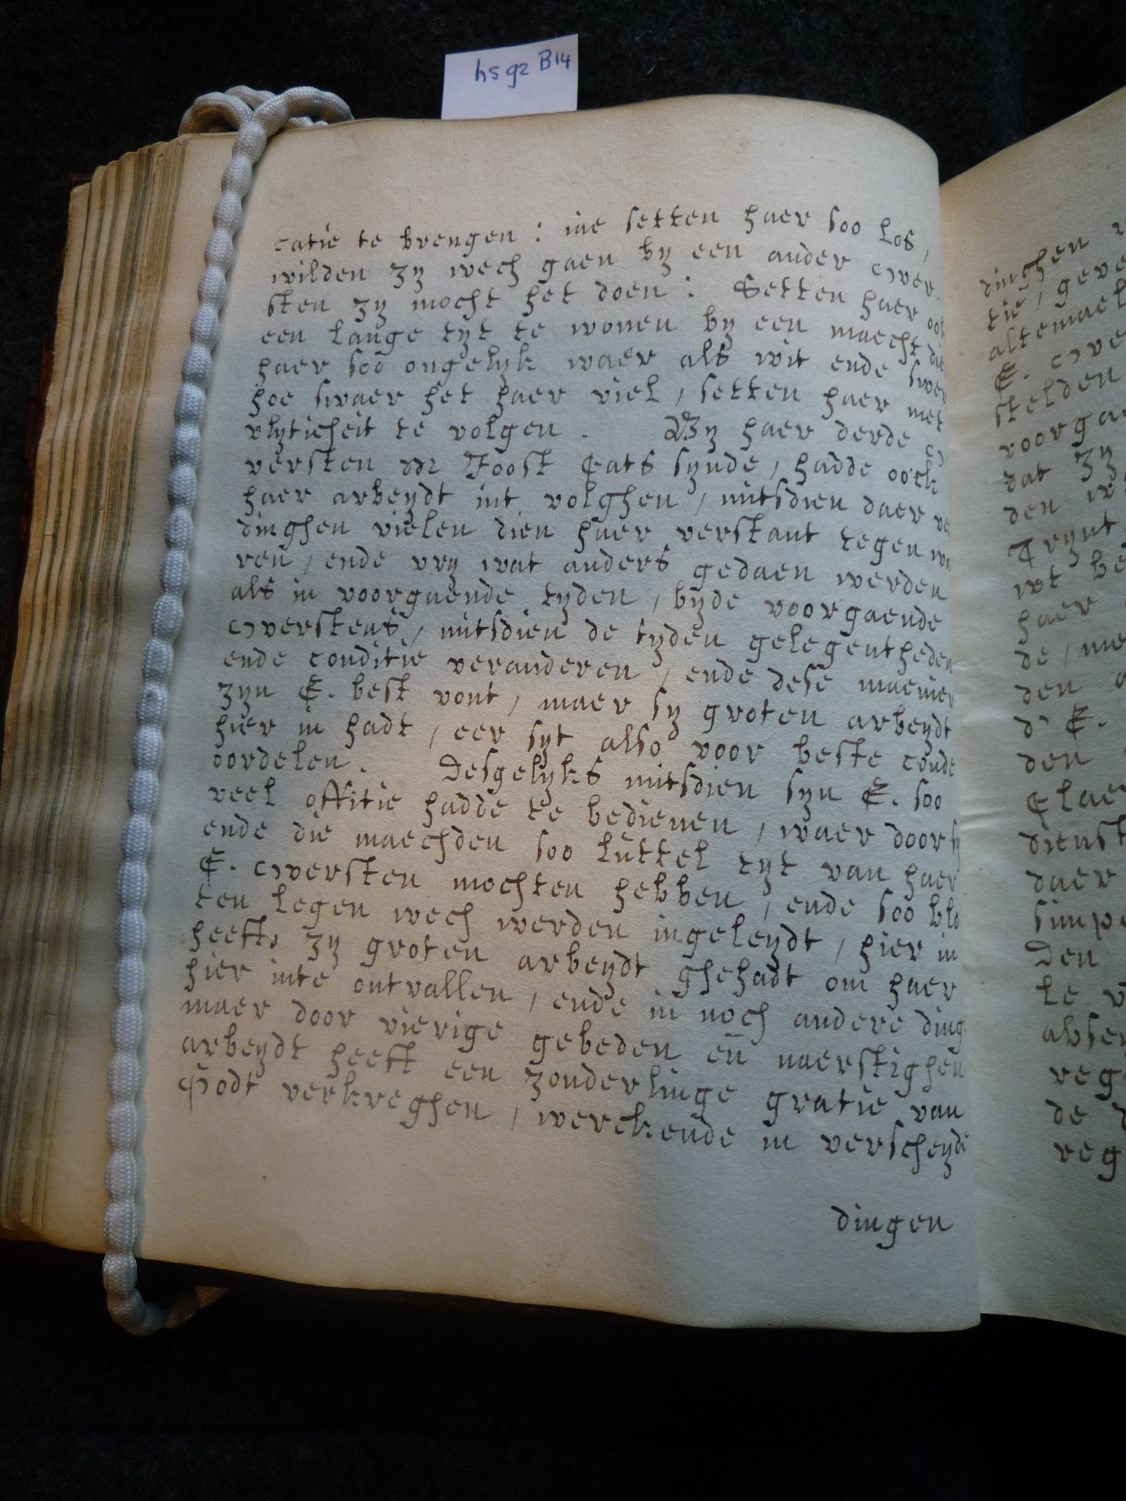 hs 92 B14
catie te brengen : jae setten haer soo los,
wilden zy wech gaen by een ander over-
sten zy mocht het doen : Setten haer oock
een lange tyt te wonen by een maecht die
haer soo ongelyk waer als wit ende swert
hoe swaer het haer viel, setten haer met
vlyticheit te volgen. By haer derde O
versten Mr Joost Cats synde, hadde oock
haer arbeydt int volghen, mitsdien daer ve
dinghen vielen dien haer verstant tegen wa
ren, ende vry wat anders gedaen werden
als in voorgaende tyden, byde voorgaende
Overstens, mitsdien de tyden gelegentheden
ende conditie veranderen, ende dese manier
zyn E. best vont, maer sy groten arbeydt
hier in hadt, eer syt also voor beste conde
oordelen. Desgelyks mitsdien syn E. soo
veel offitie hadde te bedienen, waer door s
ende die maechden soo luttel tyt van haer
E. Oversten mochten hebben, ende soo blo
ten legen wech werden ingeleydt, hier in
heeft zy groten arbeydt ghehadt om haer
hier inte ontvallen, ende in noch andere ding
maer door vierige gebeden en̄ naerstighen
arbeydt heeft een zonderlinge gratie van
Godt verkreghen, werckende in verscheyde
dingen
dinghen
tie, geve
altemael
E. Ove
stelden
voorga
dat zy
den
Trynt
wt be
haer
de, me
den
d' E.
den
Claer
dienst
daer
simpe
Den
le
absen
reg
de
reg